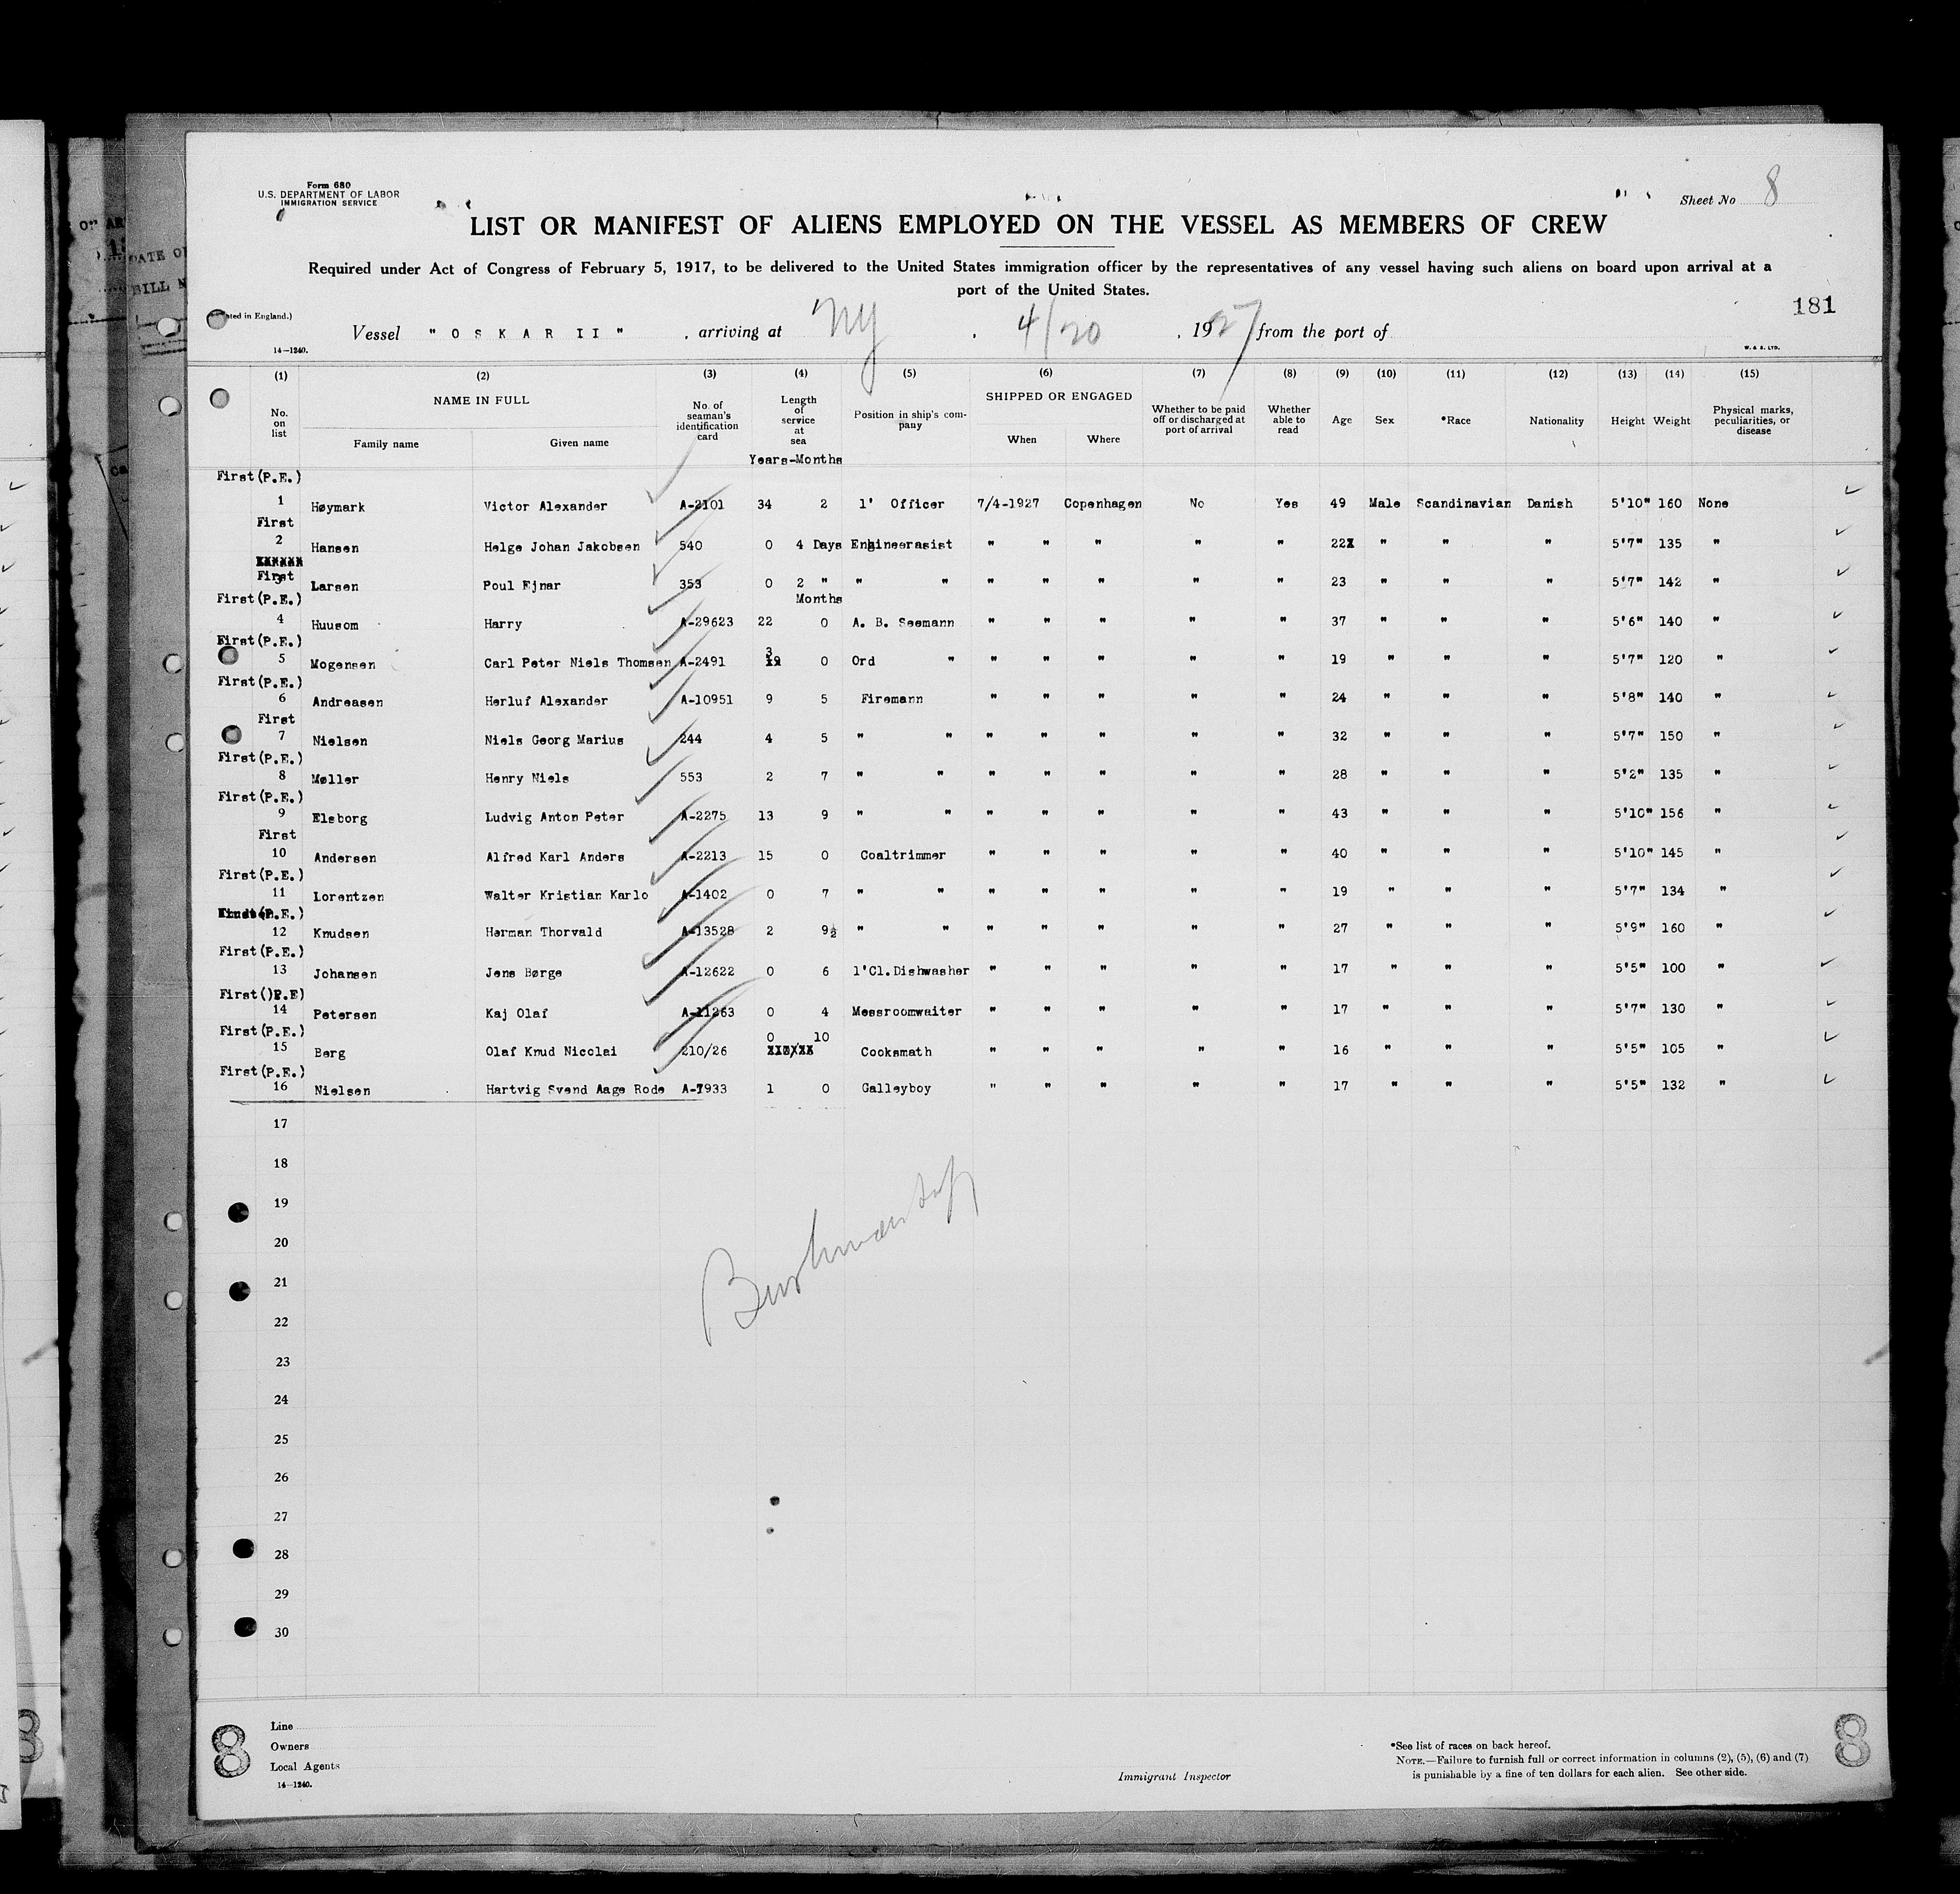 Form 680
U.S. DEPARTMENT OF LABOR
IMMIGRATION SERVICE
Sheet No 8
LIST OR MANIFEST OF ALIENS EMPLOYED ON THE VESSEL AS MEMBERS OF CREW
Required under Act of Congress of February 5, 1917, to be delivered to the United States immigration officer by the representatives of any vessel having such aliens on board upon arrival at a
port of the United States.
181
in England.)
Vessel " O S K A R II " , arriving at NY , 4/20 , 1927 from the port of
14—1240.
W. & S. LTD.
(1) (2) (3) (4) (5) (6) (7) (8) (9) (10) (11) (12) (13) (14) (15)
No. on list NAME IN FULL Family name Given name No. of seaman's identification card Length of service at sea Position in ship's company SHIPPED OR ENGAGED When Where Whether to be paid off or discharged at port of arrival Whether able to read Age Sex *Race Nationality Height Weight Physical marks, peculiarities, or disease
Years-Months
First(P.E.)
1 Høymark Victor Alexander A-2101 34 2 1' Officer 7/4-1927 Copenhagen No Yes 49 Male Scandinavian Danish 5'10" 160 None
First
2 Hansen Helge Johan Jakobsen 540 0 4 Days Engineerasist " " " " " 22 " " " 5'7" 135 "
First
3 Larsen Poul Ejnar 353 0 2 " " " " " " " " 23 " " " 5'7" 142 "
First(P.E.) Months
4 Huusom Harry A-29623 22 0 A. B. Seemann " " " " " 37 " " " 5'6" 140 "
First(P.E.)
5 Mogensen Carl Peter Niels Thomsen A-2491 3 0 Ord " " " " " " 19 " " " 5'7" 120 "
First(P.E.)
6 Andreasen Herluf Alexander A-10951 9 5 Firemann " " " " " 24 " " " 5'8" 140 "
First
7 Nielsen Niels Georg Marius 244 4 5 " " " " " " " 32 " " " 5'7" 150 "
First(P.E.)
8 Møller Henry Niels 553 2 7 " " " " " " " 28 " " " 5'2" 135 "
First(P.E.)
9 Elsborg Ludvig Anton Peter A-2275 13 9 " " " " " " " 43 " " " 5'10" 156 "
First
10 Andersen Alfred Karl Anders A-2213 15 0 Coaltrimmer " " " " " 40 " " " 5'10" 145 "
First(P.E.)
11 Lorentzen Walter Kristian Karlo A-1402 0 7 " " " " " " " 19 " " " 5'7" 134 "
(P.E.)
12 Knudsen Herman Thorvald A-13528 2 9½ " " " " " " " 27 " " " 5'9" 160 "
First(P.E.)
13 Johansen Jens Børge A-12622 0 6 1'Cl.Dishwasher " " " " " 17 " " " 5'5" 100 "
First()P.E)
14 Petersen Kaj Olaf A-11263 0 4 Messroomwaiter " " " " " 17 " " " 5'7" 130 "
First(P.E.) 0 10
15 Berg Olaf Knud Nicolai 210/26 Cooksmath " " " " " 16 " " " 5'5" 105 "
First(P.E.)
16 Nielsen Hartvig Svend Aage Rode A-7933 1 0 Galleyboy " " " " " 17 " " " 5'5" 132 "
17
18
19
20
21
22
23
24
25
26
27
28
29
30
8
Line
Owners
Local Agents
14—1240.
Immigrant Inspector
*See list of races on back hereof.
NOTE.—Failure to furnish full or correct information in columns (2), (5), (6) and (7)
is punishable by a fine of ten dollars for each alien. See other side.
8